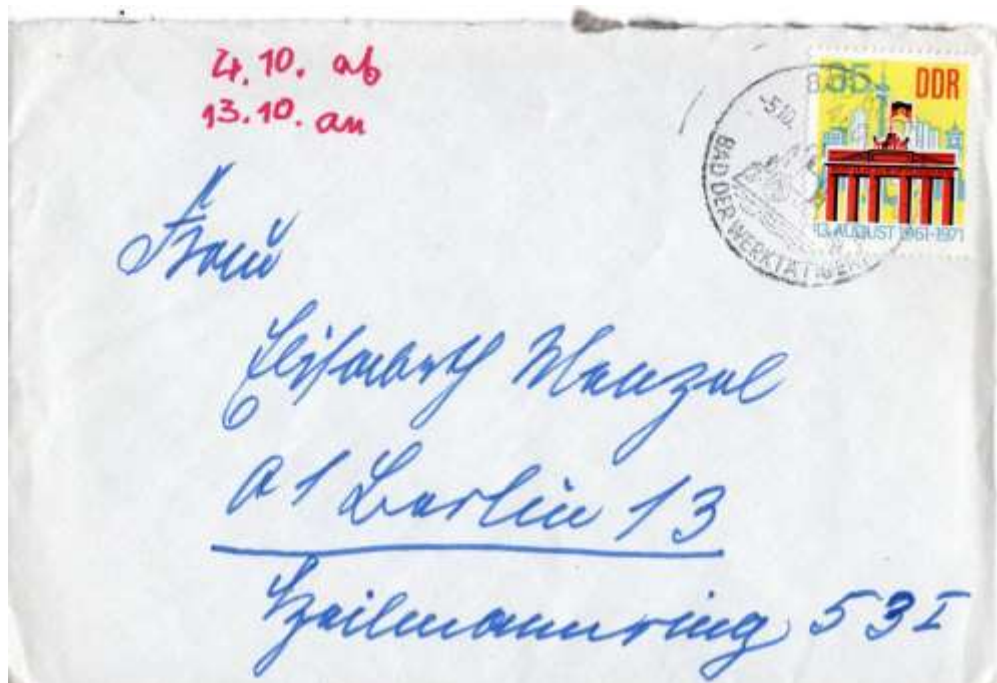 4.10. ab
13.10. an
35 DDR
13. AUGUST 1961-1971
-5.10.
BAD DER WERKTÄTIGEN
Frau
Elisabeth Menzel
1 Berlin 13
Heilmannring 53 I